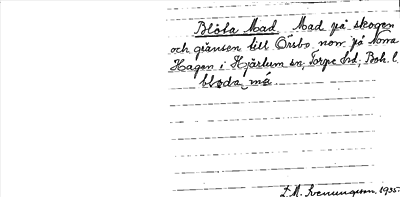 Blöta Mad. Mad på skogen
och gränsen till Örsbo norr på Norra
Hagen i Hjärtum sn, Torpe hd, Boh. l.
bloda má
D. M. Svenungsson. 1935.